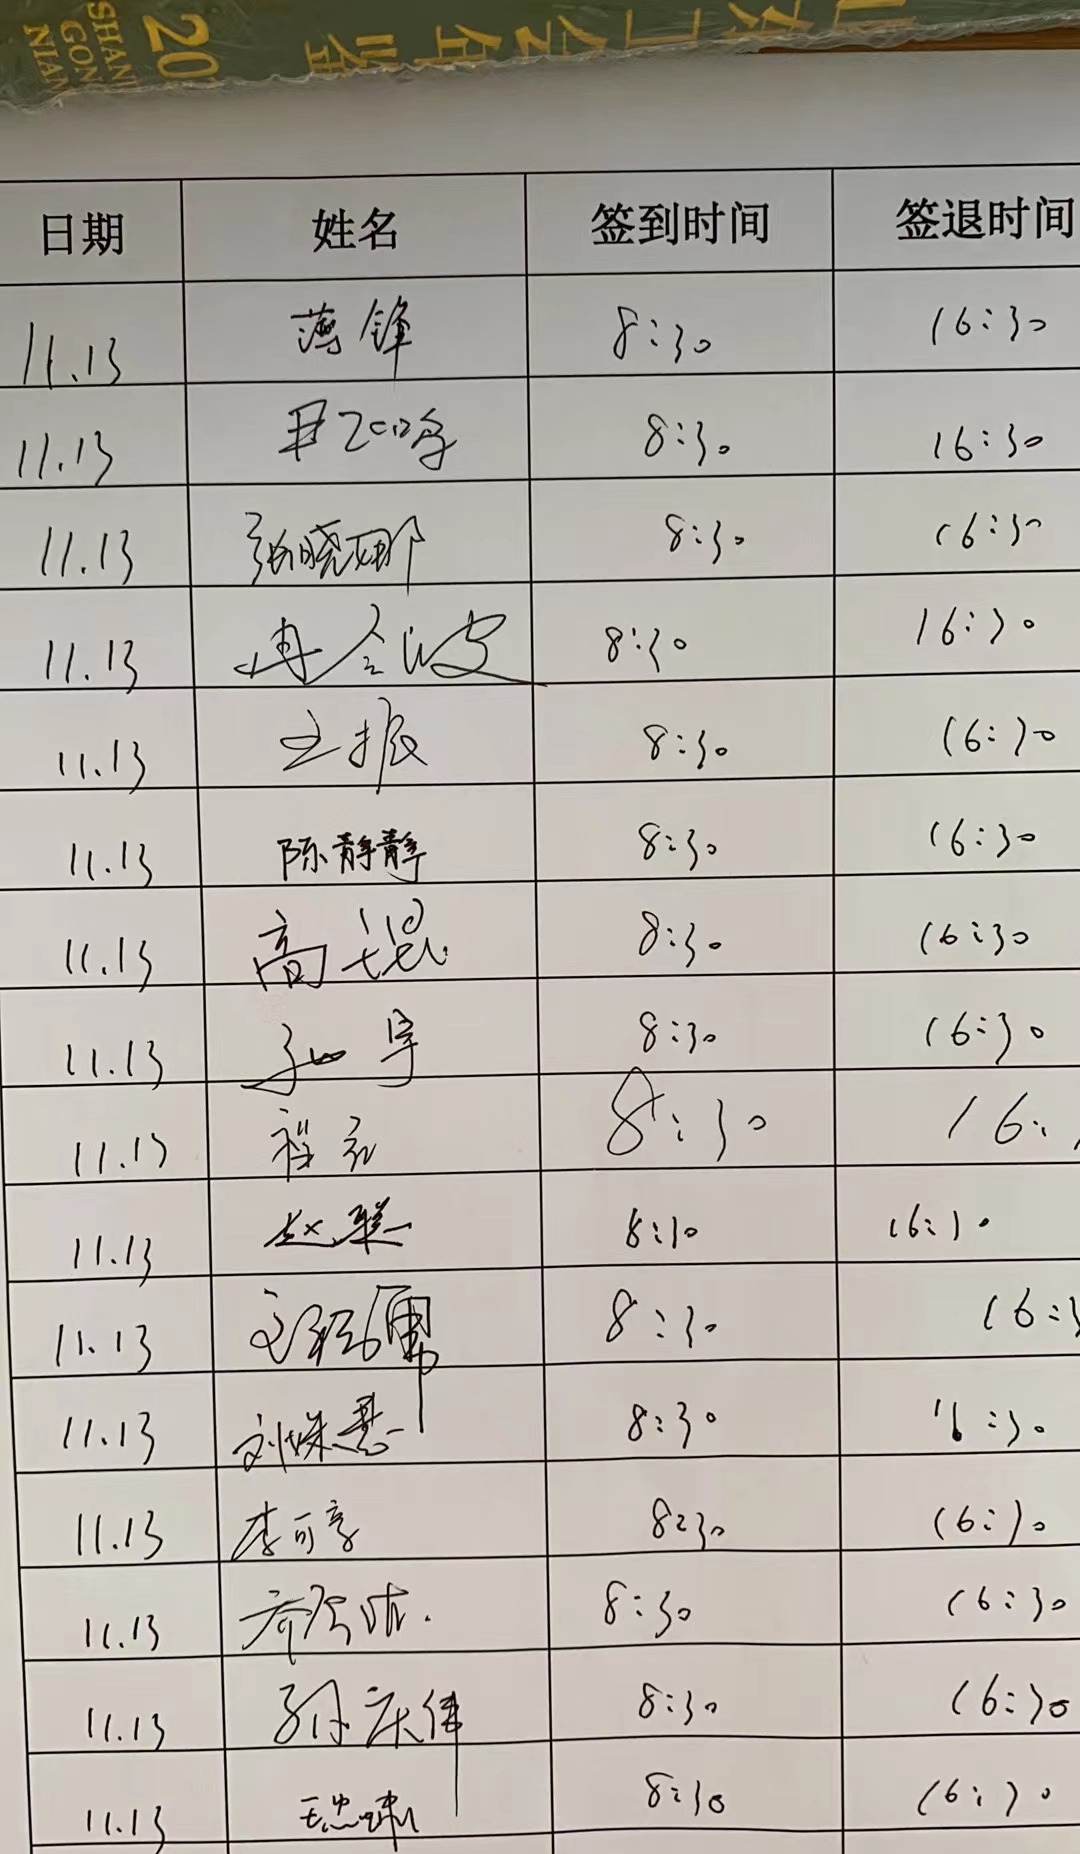 山东工会年鉴
20
SHAN
GON
NIAN
日期 姓名 签到时间 签退时间
11.13 薄锋 8:30 16:30
11.13 8:30 16:30
11.13 张晓娜 8:30 16:30
11.13 冉令波 8:30 16:30
11.13 王振 8:30 16:30
11.13 陈静静 8:30 16:30
11.13 高堤 8:30 16:30
11.13 8:30 16:30
11.13 8:30 16:
11.13 赵琪 8:30 16:30
11.13 8:30 16:3
11.13 刘姝慧 8:30 16:30
11.13 李可亭 8:30 16:30
11.13 8:30 16:30
11.13 孙庆伟 8:30 16:30
11.13 8:30 16:30